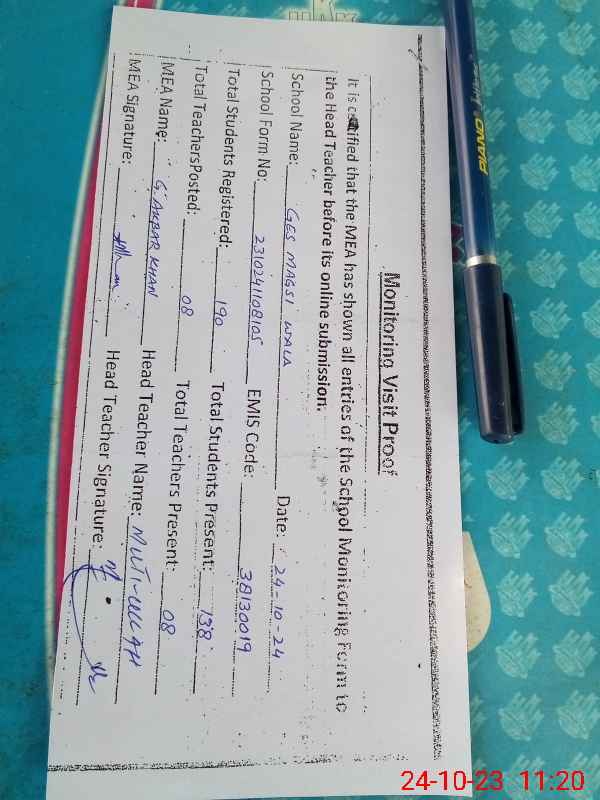 Monitoring Visit Proof
It is certified that the MEA has shown all entries of the School Monitoring Form to
the Head Teacher before its online submission.
School Name: GES MAGSI WALA Date: 24-10-24
School Form No: 2310241108105 EMIS Code: 38130019
Total Students Registered: 190 Total Students Present: 138
Total TeachersPosted: 08 Total Teachers Present: 08
MEA Name: G. AKBAR KHAN Head Teacher Name: MUTI-ULLAH
MEA Signature: Head Teacher Signature:
PIANO
24-10-23 11:20